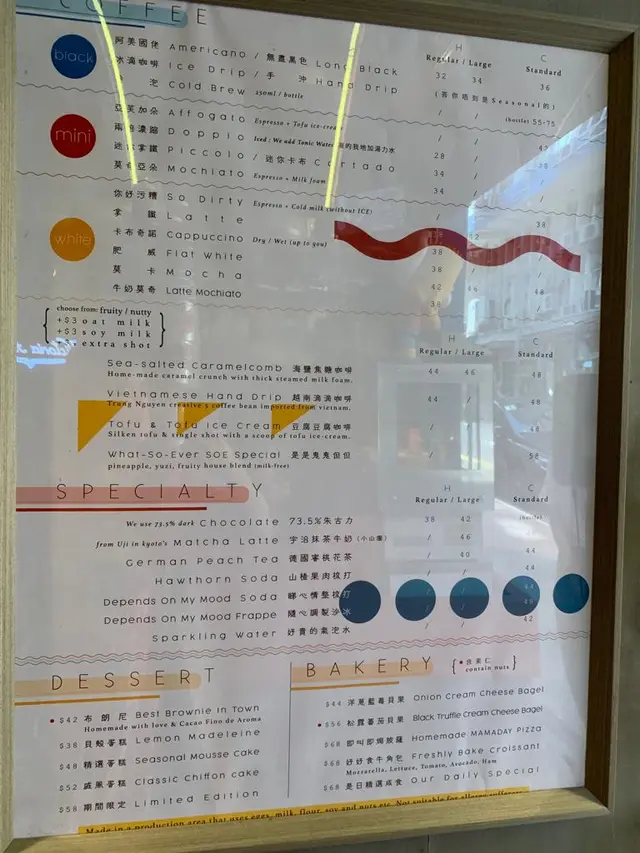 COFFEE
H C
Regular / Large Standard
black
阿美國佬 Americano / 無盡黑色 Long Black 32 34 36
冰滴咖啡 Ice Drip / 手 沖 Hand Drip (答你唔到是Seasonal的)
Cold Brew 250ml / bottle / / (bottle) 55-75
mini
亞芙加朵 Affogato Espresso + Tofu ice-cream / /
Doppio Iced: We add Tonic Water 28 /
迷你拿鐵 Piccolo / 迷你卡布 Cortado 34 /
莫奇亞朵 Mochiato Espresso + Milk foam 34 /
white
你好污糟 So Dirty Espresso + Cold milk (without ICE) / / 38
拿 鐵 Latte
卡布奇諾 Cappuccino Dry / Wet (up to you) 38
肥 威 Flat White 38 / /
莫 卡 Mocha 42 46 48
牛奶莫奇 Latte Mochiato 38 / /
choose from: fruity / nutty
+$3 oat milk
+$3 soy milk
extra shot
H C
Regular / Large Standard
Sea-salted Caramelcomb 海鹽焦糖咖啡 44 46 48
Home-made caramel crunch with thick steamed milk foam.
Vietnamese Hand Drip 越南滴滴咖啡 44 / 48
Trung Nguyen creative 5 coffee bean imported from vietnam.
Tofu & Tofu Ice Cream 豆腐豆腐咖啡 / / 48
Silken tofu & single shot with a scoop of tofu ice-cream.
What-So-Ever SOE Special 是是鬼鬼但但 / / 58
pineapple, yuzi, fruity house blend (milk-free)
SPECIALTY
H C
Regular / Large Standard
We use 73.5% dark Chocolate 73.5%朱古力 38 42
from Uji in kyoto's Matcha Latte 宇治抹茶牛奶 (小山園) / 46
German Peach Tea 德國蜜桃花茶 / 40 44
Hawthorn Soda 山楂果肉梳打 44
Depends On My Mood Soda 睇心情整梳打
Depends On My Mood Frappe 隨心調製沙冰 / /
Sparkling Water 矜貴的氣泡水 / / 42
DESSERT
$42 布 朗 尼 Best Brownie In Town
Homemade with love & Cacao Fino de Aroma
$38 貝殼蛋糕 Lemon Madeleine
$48 精選蛋糕 Seasonal Mousse Cake
$52 戚風蛋糕 Classic Chiffon cake
$58 期間限定 Limited Edition
BAKERY
含果仁
contain nuts
$44 洋蔥藍莓貝果 Onion Cream Cheese Bagel
$56 松露番茄貝果 Black Truffle Cream Cheese Bagel
$68 即叫即焗披薩 Homemade MAMADAY PIZZA
$68 好好食牛角包 Freshly Bake Croissant
Mozzarella, Lettuce, Tomato, Avocado, Ham
$68 是日精選咸食 Our Daily Special
Made in a production area that uses eggs, milk, flour, soy and nuts etc. Not suitable for allergy sufferers